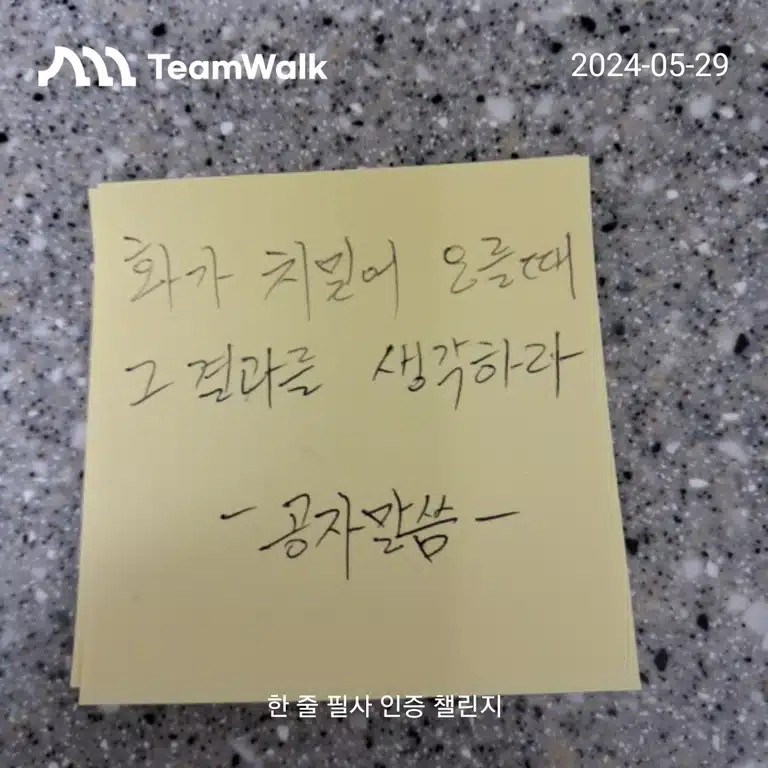 TeamWalk
2024-05-29
화가 치밀어 오를때
그 결과를 생각하라
- 공자말씀 -
한 줄 필사 인증 챌린지